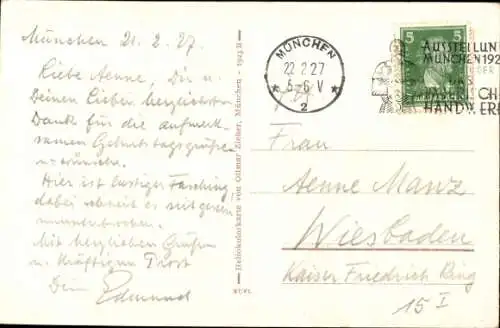 München 21.2.27.
Liebe Aenne, Dir u.
Deinen Lieben herzlichsten
Dank für die aufmerk-
samen Geburtstagsgrüße
u. -wünsche.
Hier ist lustiger Fasching
dabei schneit es seit gestern
ununterbrochen.
Mit herzlichen Grüßen
u. kräftigem Prost
Dein Edmund
Heliokolorkarte von Ottmar Zieher, München - 1925 II
MÜNCHEN
22.2.27
5-6 V
2
5
AUSSTELLUN
MÜNCHEN 192
DAS
BAYERISCHE
HANDWERK
Frau
Aenne Manz
Wiesbaden
Kaiser Friedrich Ring
15 I